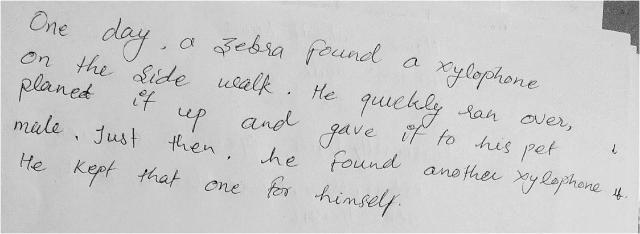 One day, a zebra found a xylophone
on the side walk. He quickly ran over,
planed it up and gave it to his pet
mule. Just then, he found another xylophone
He kept that one for himself.